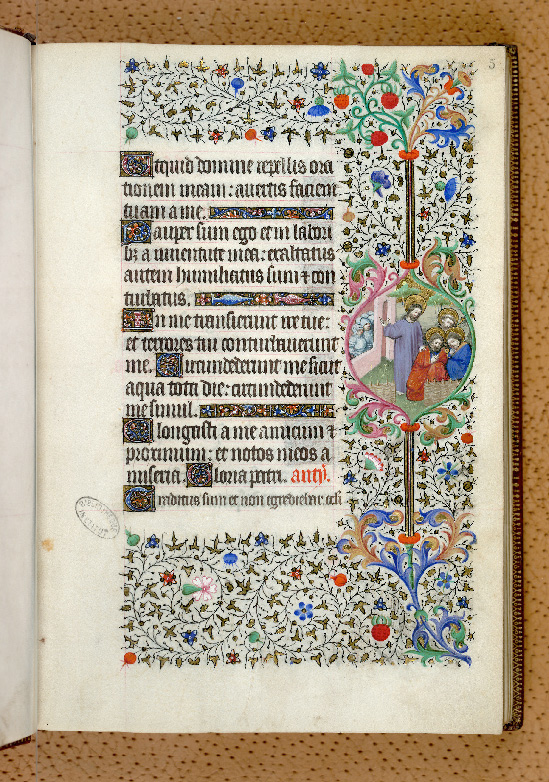 5
Utquid domine repellis ora
tionem meam: auertis faciem
tuam a me.
Pauper sum ego et in labori
bꝫ a iuuentute mea: exaltatus
autem humiliatus sum ⁊ con
turbatus.
In me transierunt ire tue:
et terrores tui conturbauerunt
me. Circumdederunt me sicut
aqua tota die: circumdederunt
me simul.
Elongasti a me amicum ⁊
proximum: et notos meos a
miseria. Gloria patri. ant̄.
Traditus sum et non egrediebar. oculi